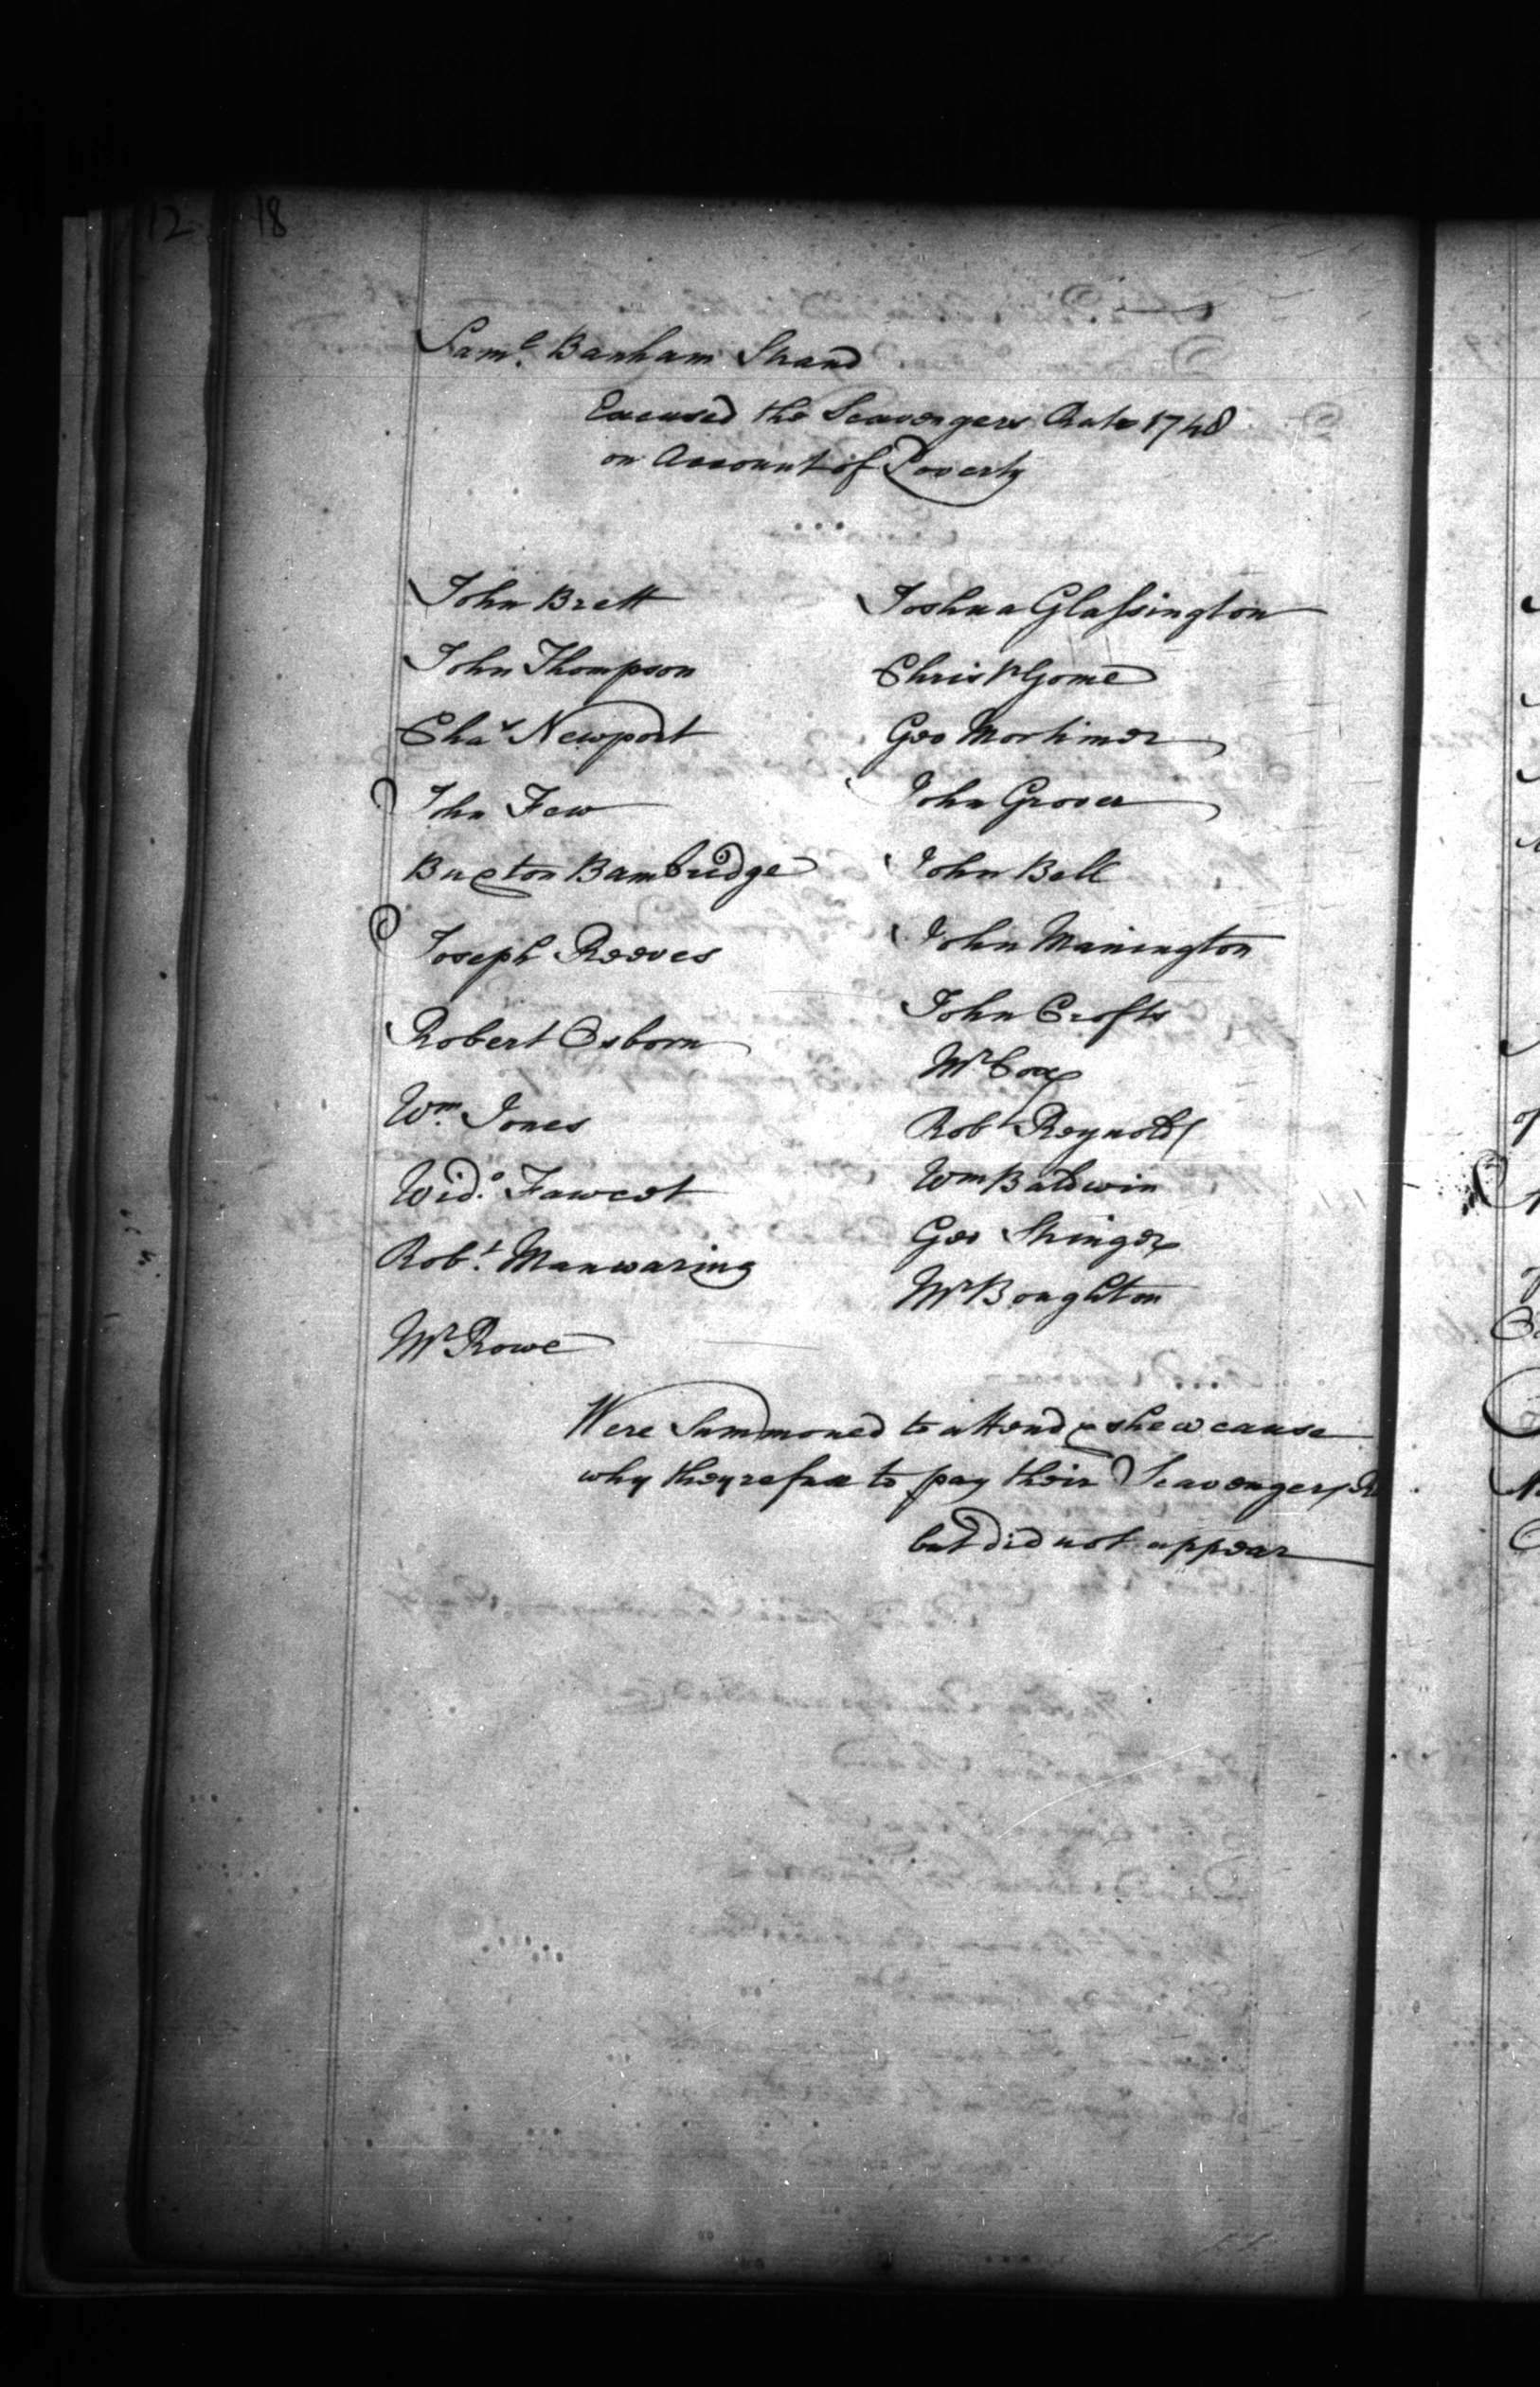 18
Saml. Banham Strand
Excused the Scavengers Rate 1748
on Account of Poverty
John Brett
John Thompson
Chas Newport
John Few
Buxton Bambridge
Joseph Reeves
Robert Osborn
Wm. Jones
Wido. Fawcet
Robt. Manwaring
Mr Rowe
Joshua Glassington
Chrisr Gome
Geo Mortimer
John Grover
John Bell
John Manington
John Crofts
Mr Cox
Robt Reynolds
Wm Baldwin
Geo Stringer
Mr Boughton
Were Summoned to attend & shew cause
why they refuse to pay their Scavengers R
but did not appear